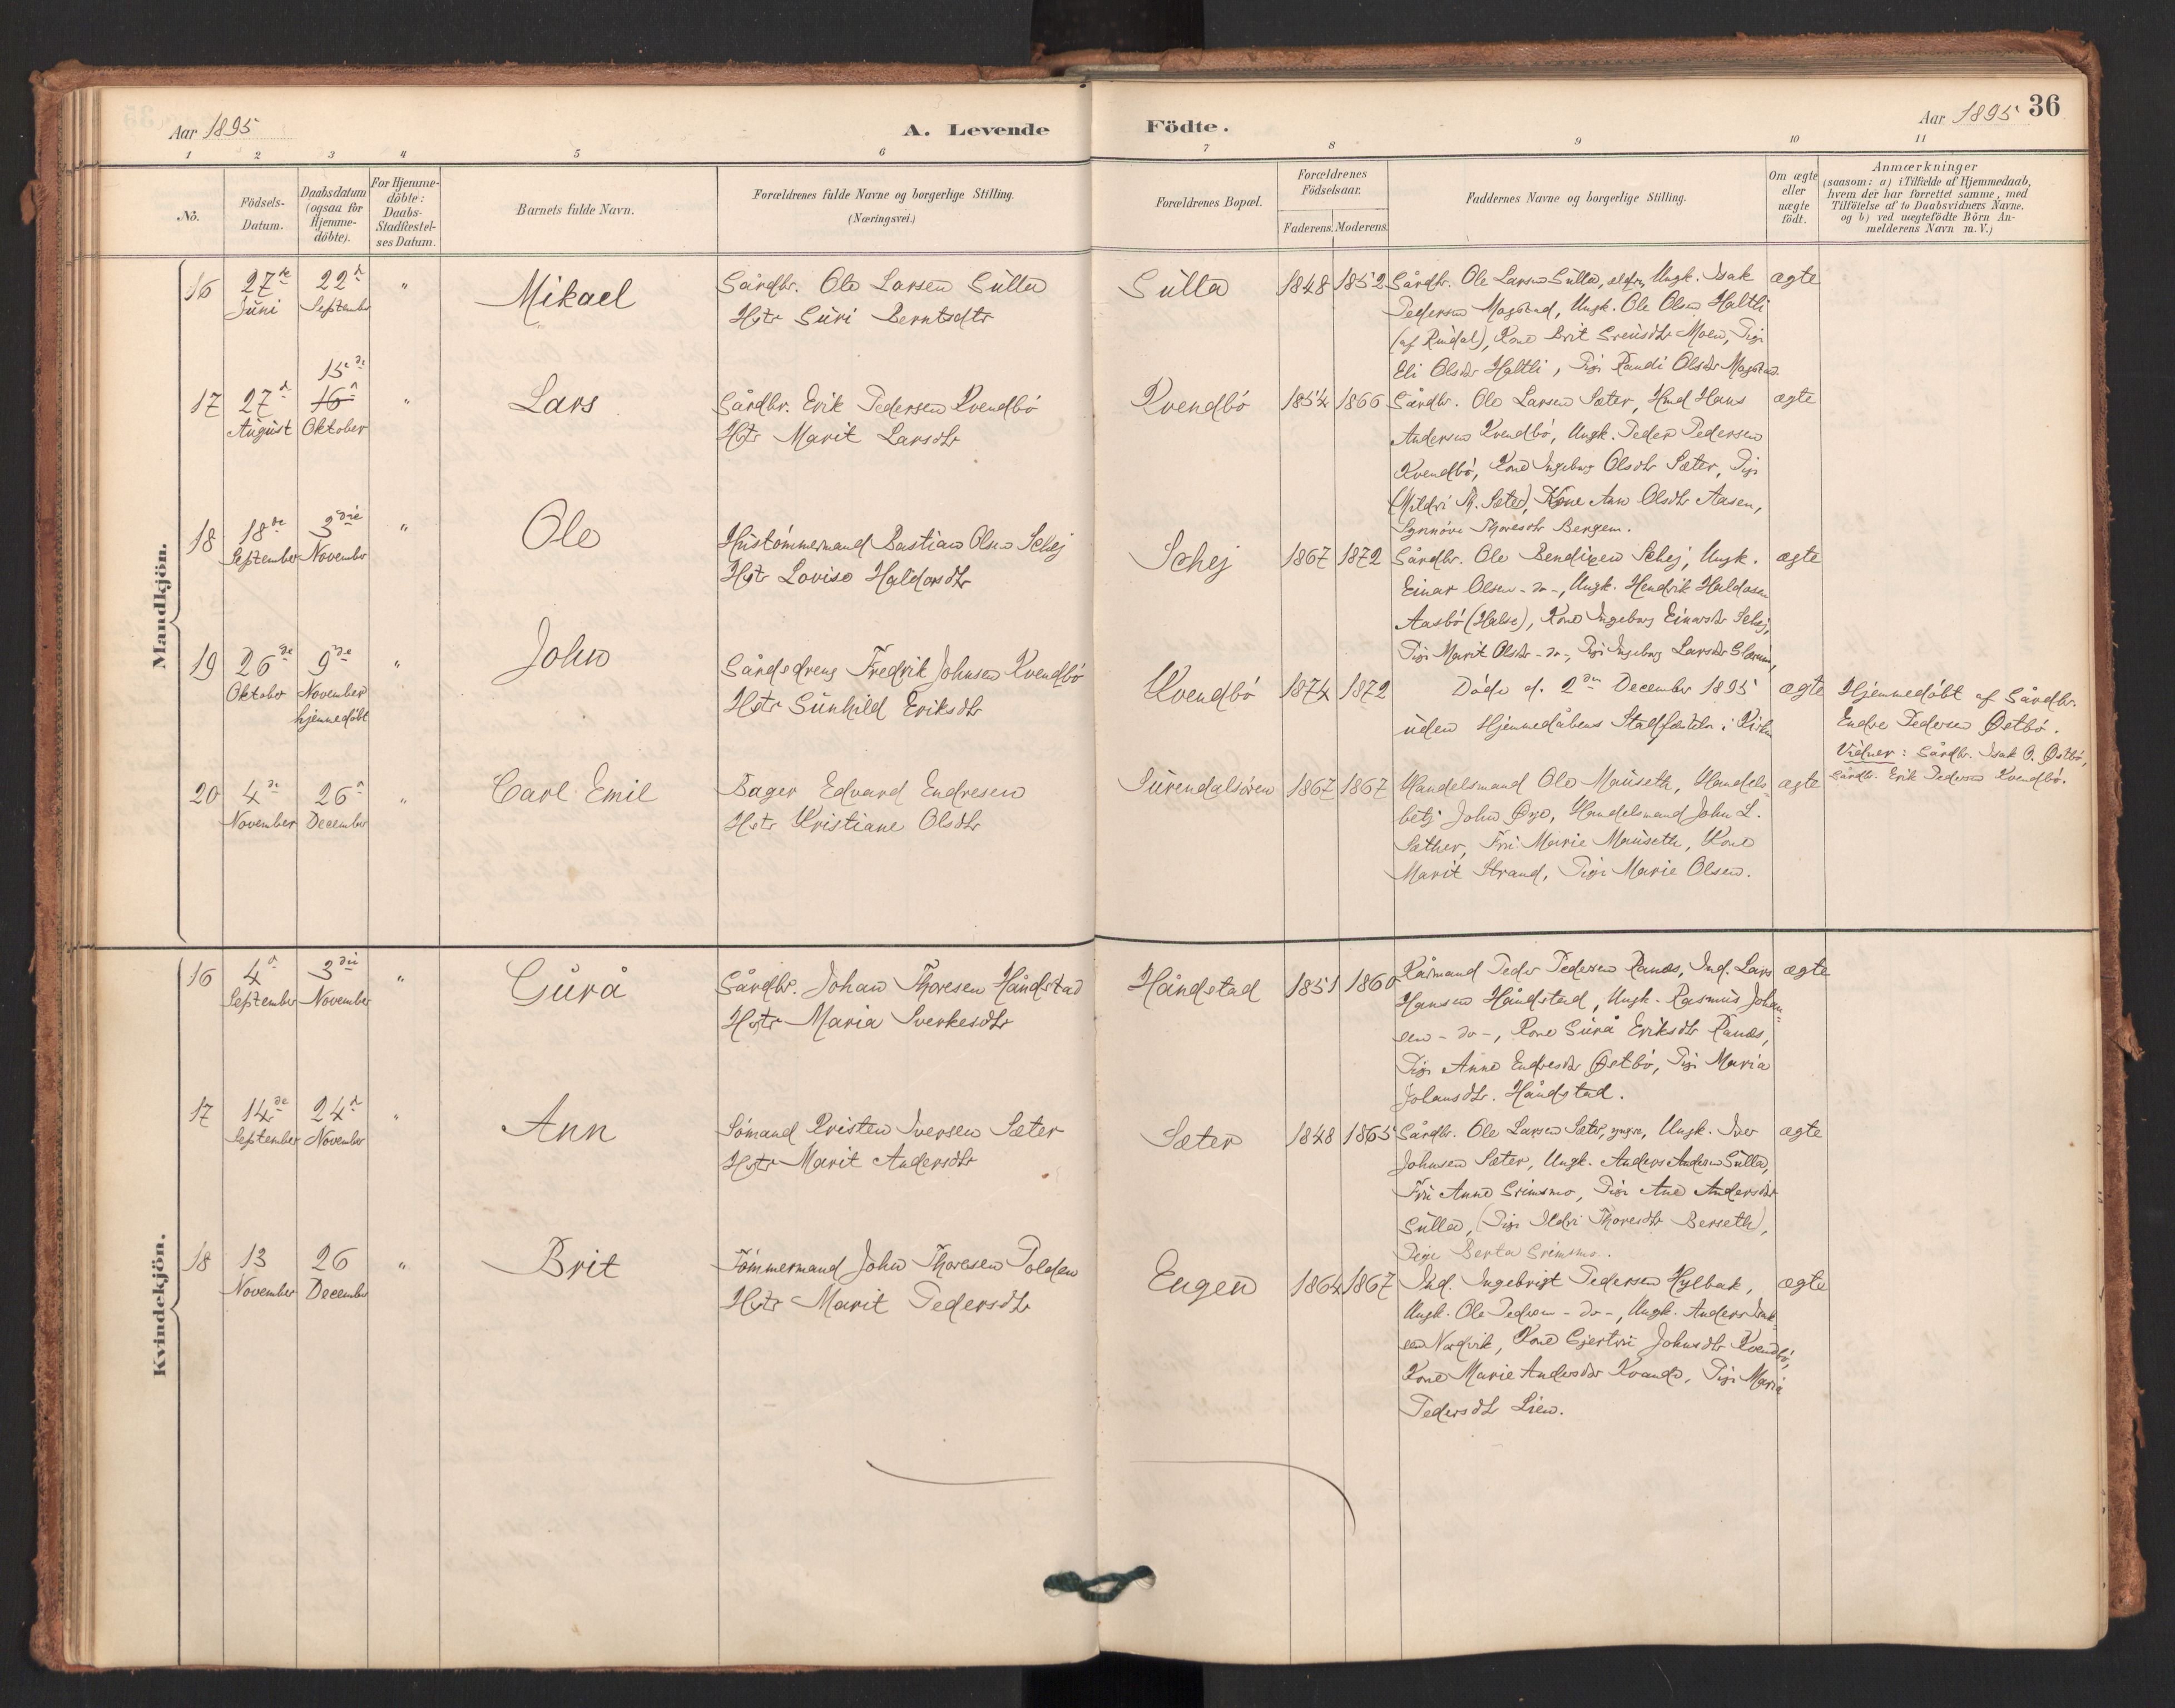 Aar 1895
A. Levende
Födte.
Aar 1895 36
1 2 3 4 5 6 7 8 9 10 11
No.
Födsels-
Datum.
Daabsdatum
(ogsaa for
Hjemme-
döbte).
For Hjemme-
döbte:
Daabs-
Stadfæstel-
ses Datum.
Barnets fulde Navn.
Forældrenes fulde Navne og borgerlige Stilling.
(Næringsvei.)
Forældrenes Bopæl.
Forældrenes
Födselsaar.
Faderens. Moderens.
Faddernes Navne og borgerlige Stilling.
Om ægte
eller
uægte
födt.
Anmærkninger
(saasom: a) i Tilfælde af Hjemmedaab,
hvem der har forrettet samme, med
Tilföielse af to Daabsvidners Navne.
og b) ved uægtefödte Börn An-
melderens Navn m. V.)
Mandkjön.
16 27de Juni
22d September
"
Mikael
Gårdbr. Ole Larsen Sulla
Hstr Guri Berntsdtr
Sulla 1848 1852
Gårdbr. Ole Larsen Sulla, eldre, Ungk. Isak
Pedersen Mogstad, Ungk. Ole Olsen Haltli
(af Rindal), Kone Brit Moen, Pige
Eli Olsdtr Haltli, Pige Randi Olsdtr Mogstad.
ægte
17 27d August
15de
16d Oktober
"
Lars
Gårdbr. Erik Pedersen Kvendbö
Hstr Marit Larsdtr
Kvendbö 1854 1866
Gårdbr. Ole Larsen Sæter, Hans
Andersen Kvendbö, Ungk. Peder Pedersen
Kvendbö, Kone Ingeborg Olsdtr Sæter, Pige
(Mildri M. Sæter), Kone Ann Olsdtr Aasen,
Synnöve Thoresdtr Bergem.
ægte
18 18de September
3die November
"
Ole
Hustömmermand Bastian Olsen Schej
Hstr Lovise Haldorsdtr
Schej 1867 1872
Gårdbr. Ole Bendixen Schej, Ungk.
Einar Olsen -do-, Ungk. Hendrik Haldosen
Aasbö (Halse), Kone Ingeborg Einarsdtr Schej,
Pige Marit Olsdtr -do-, Pige Ingeborg Larsdtr Glærum,
ægte
19 26de Oktober
9de November
hjemmedöbt
"
John
Gårdsdreng Fredrik Johnsen Kvendbö
Hstr Gunhild Eriksdtr
Kvendbö 1874 1872
Döde d. 2den December 1895
uden Hjemmedåbens Stadfæstelse i Kirken
ægte
Hjemmedöbt af Gårdbr.
Endre Pedersen Østbö.
Vidner: Gårdbr. Isak O. Østbö,
Gårdbr. Erik Pedersen Kvendbö.
20 4de November
26d December
"
Carl Emil
Bager Edvard Endresen
Hstr Kristiane Olsdtr
Surendalsören 1867 1867
Handelsmand Ole Mauseth, Handels-
betj John Øye, Handelsmand John L.
Sæther, Fru Marie Mauseth, Kone
Marit Strand, Pige Marie Olsen.
ægte
Kvindekjön.
16 4d September
3die November
"
Gurå
Gårdbr. Johan Thoresen Håndstad
Hstr Maria Sverkesdtr
Håndstad 1851 1860
Kårmand Peder Pedersen Ranæs, Ind. Lars
Hansen Håndstad, Ungk. Rasmus Johan-
sen -do-, Kone Gurå Eriksdtr Ranæs,
Pige Anne Endresdtr Østbö, Pige Maria
Johansdtr. Håndstad.
ægte
17 14de September
24d November
"
Ann
Sömand Kristen Iversen Sæter
Hstr Marit Andersdtr
Sæter 1848 1865
Gårdbr. Ole Larsen Sæter, yngre, Ungk. Iver
Johnsen Sæter, Ungk. Anders Andersen Sulla,
Fru Anne Grimsmo, Pige Ane Andersdtr
Sulla, (Pige Ildri Thoresdtr Berseth),
Pige Berta Grimsmo.
ægte
18 13 November
26 December
"
Brit
Tömmermand John Thoresen Polden
Hstr Marit Pedersdtr
Engen 1864 1867
Ind. Ingebrigt Pedersen Hylbak,
Ungk. Ole Pedersen -do-, Ungk. Anders Isak-
sen Nordvik, Kone Gjertru Johnsdtr Kvendbö,
Kone Marie Andersdtr Kvande, Pige Maria
Pedersdtr Lien.
ægte